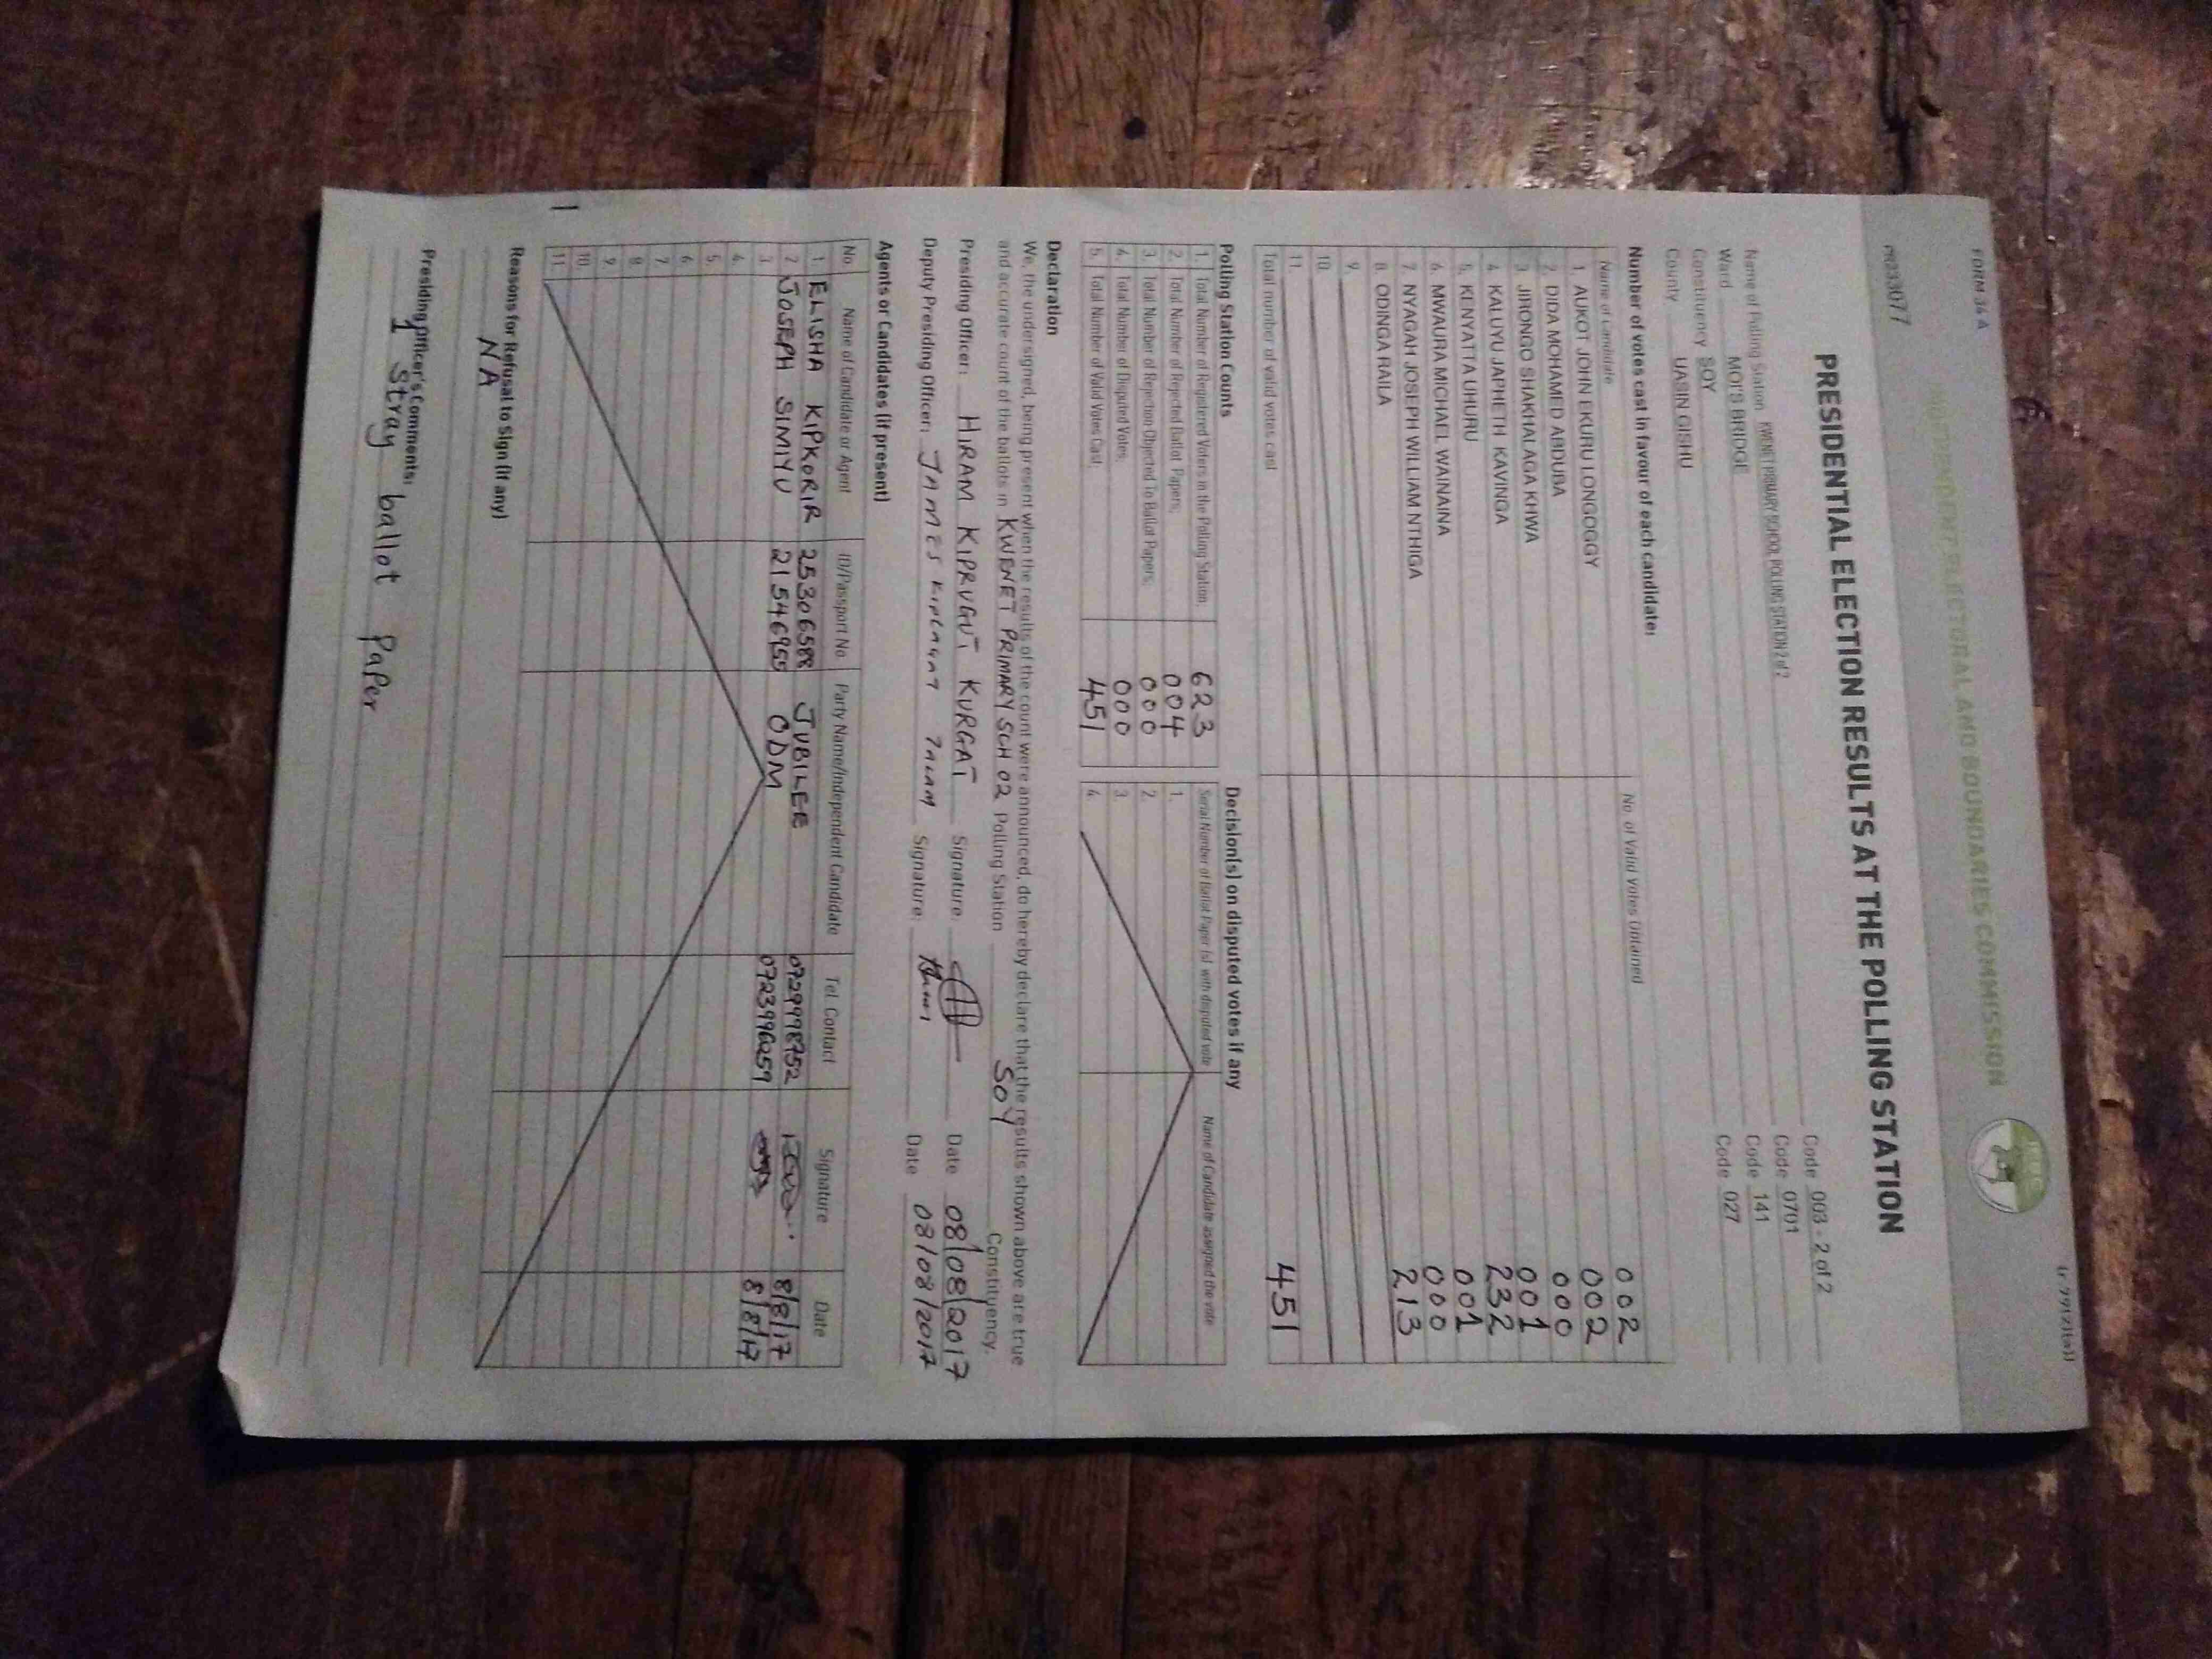 FORM 34 A
INDEPENDENT ELECTORAL AND BOUNDARIES COMMISSION
IEBC
PRESIDENTIAL ELECTION RESULTS AT THE POLLING STATION
Name of Polling Station KWENET PRIMARY SCHOOL POLLING STATION 2 of 2 Code 003 - 2 of 2
Ward MOI'S BRIDGE Code 0701
Constituency SOY Code 141
County UASIN GISHU Code 027
Number of votes cast in favour of each candidate:
Name of Candidate No. of Valid Votes Obtained
1. AUKOT JOHN EKURU LONGOGGY 002
2. DIDA MOHAMED ABDUBA 002
3. JIRONGO SHAKHALAGA KHWA 000
4. KALUYU JAPHETH KAVINGA 001
5. KENYATTA UHURU 232
6. MWAURA MICHAEL WAINAINA 001
7. NYAGAH JOSEPH WILLIAM NTHIGA 000
8. ODINGA RAILA 213
9.
10.
11.
Total number of valid votes cast 451
Polling Station Counts
1. Total Number of Registered Voters in the Polling Station: 623
2. Total Number of Rejected Ballot Papers: 004
3. Total Number of Rejection Objected To Ballot Papers: 000
4. Total Number of Disputed Votes: 000
5. Total Number of Valid Votes Cast: 451
Decision(s) on disputed votes if any
Serial Number of Ballot Paper (s) with disputed vote Name of Candidate assigned the vote
1.
2.
3.
4.
Declaration
We, the undersigned, being present when the results of the count were announced, do hereby declare that the results shown above are true
and accurate count of the ballots in KWENET PRIMARY SCH 02 Polling Station SOY Constituency.
Presiding Officer: HIRAM KIPRUGUT KURGAT Signature: Date 08/08/2017
Deputy Presiding Officer: JAMES KIPLAGAT Signature: Date 08/08/2017
Agents or Candidates (if present)
No Name of Candidate or Agent ID/Passport No Party Name/Independent Candidate Tel. Contact Signature Date
1 ELISHA KIPKORIR 25306588 JUBILEE 0729998752 8/8/17
2 JOSEPH SIMIYU 21546955 ODM 0723996259 8/8/17
3.
4.
5.
6.
7.
8.
9.
10.
11.
Reasons for Refusal to Sign (if any)
NA
Presiding Officer's Comments:
1 Stray ballot Paper